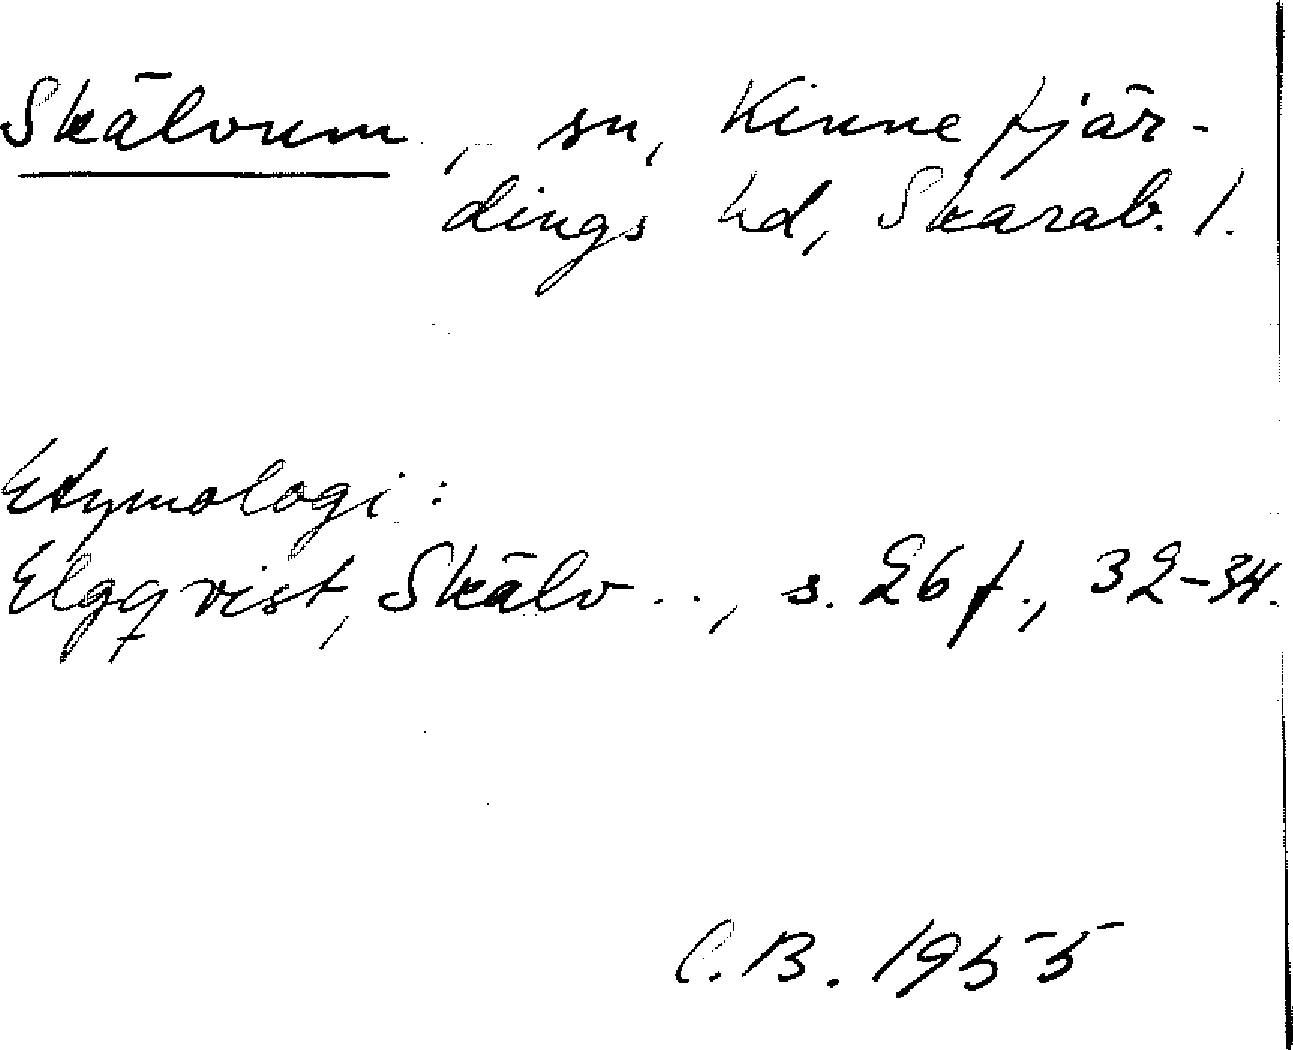 Skälvum, sn, Kinnefjär-
dings hd, Skarab. l.
Etymologi:
Elgqvist, Skälv..., s. 26 f., 32-34.
C.B. 1955